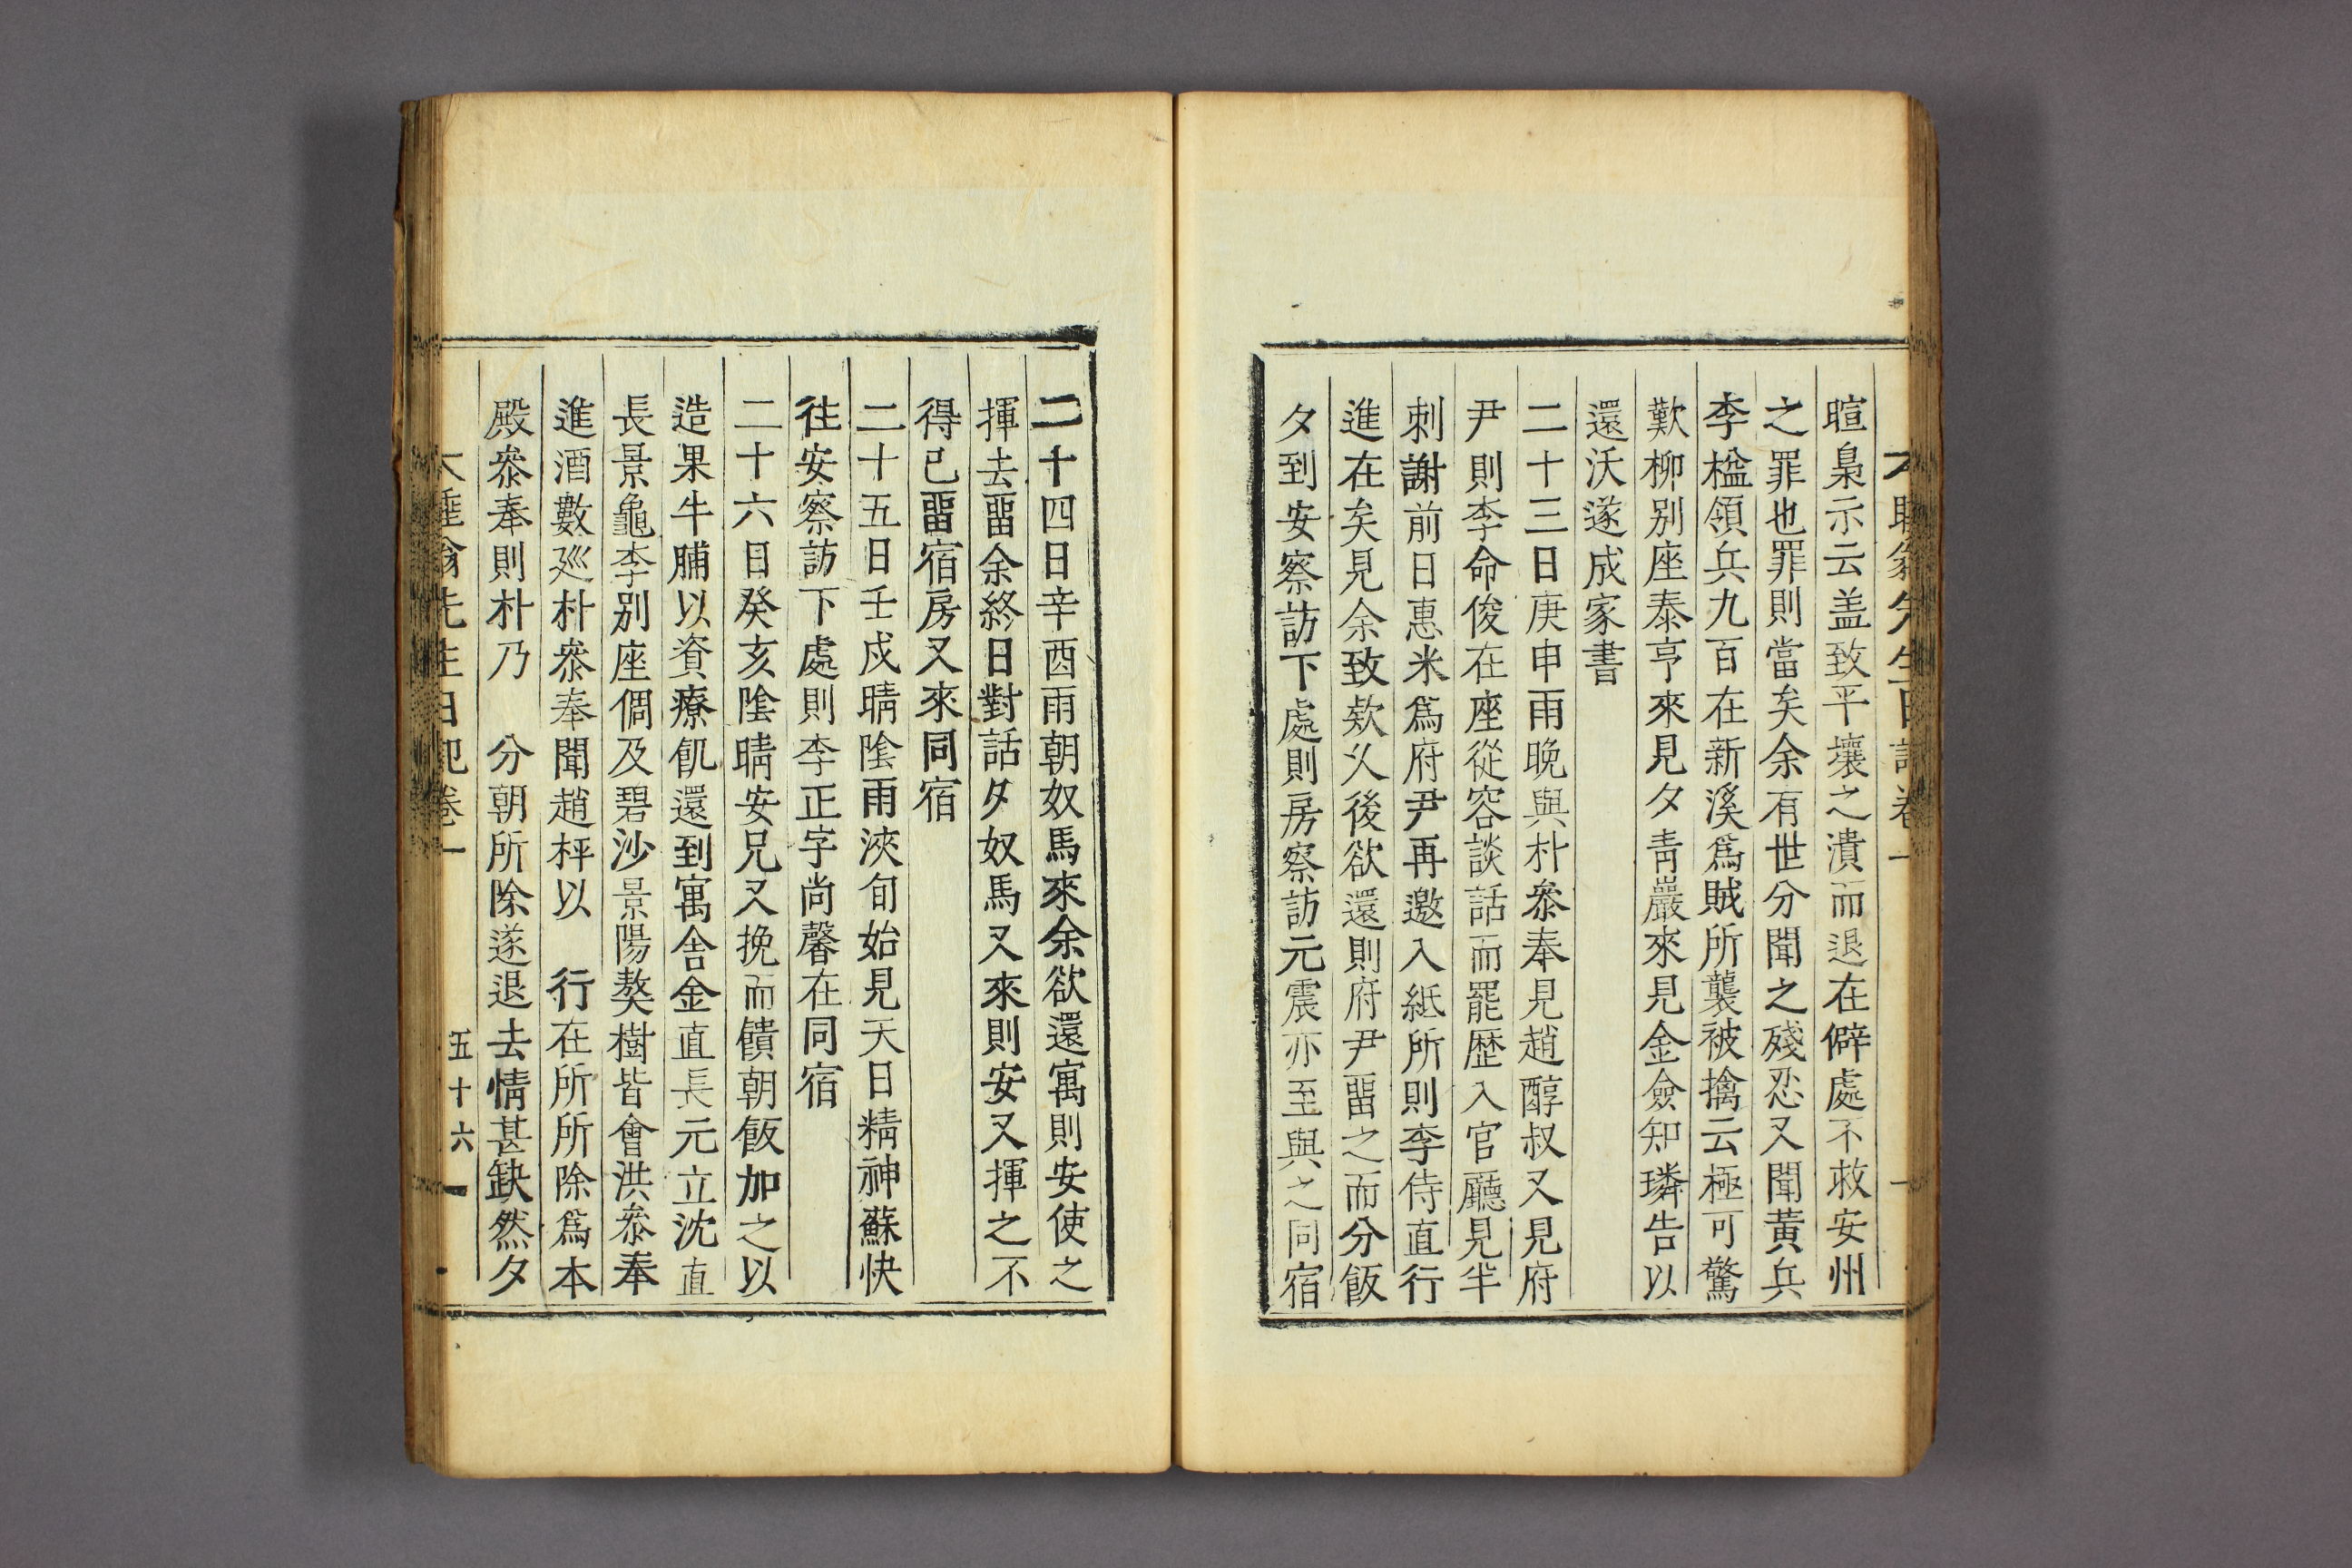 暄梟示云盖致平壤之潰而退在僻處不救安州
之罪也罪則當矣余有世分聞之殘忍又聞黃兵
李楹領兵九百在新溪爲賊所襲被擒云極可驚
歎柳別座泰亨來見夕靑巖來見金僉知璘告以
還沃遂成家書
二十三日庚申雨晚與朴叅奉見趙醇叔又見府
尹則李命俊在座從容談話而罷歷入官廳見半
刺謝前日惠米爲府尹再邀入紙所則李侍直行
進在矣見余致欵乆後欲還則府尹畱之而分飯
夕到安察訪下處則房察訪元震亦至與之同宿
二十四日辛酉雨朝奴馬來余欲還寓則安使之
揮去畱余終日對話夕奴馬又來則安又揮之不
得已畱宿房又來同宿
二十五日壬戌晴陰雨浹旬始見天日精神蘇快
往安察訪下處則李正字尚馨在同宿
二十六日癸亥陰晴安兄又挽而饋朝飯加之以
造果牛脯以資療飢還到寓舍金直長元立沈直
長景龜李別座倜及碧沙景陽獒樹皆會洪叅奉
進酒數廵朴叅奉聞趙枰以 行在所所除爲本
殿叅奉則朴乃 分朝所除遂退去情甚缺然夕
先生日記卷一
五十六